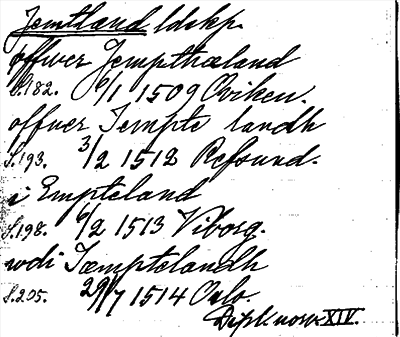 Jemtland ldskp.
offwer Jempthæland
S. 182. 6/1 1509 Oviken.
offuer Jempte landh
S. 193. 3/2 1512 Refsund.
i Empteland
S. 198. 6/2 1513 Viborg.
wdi Jæmptelandh
S. 205. 29/7 1514 Oslo.
Dipl. norv. XIV.